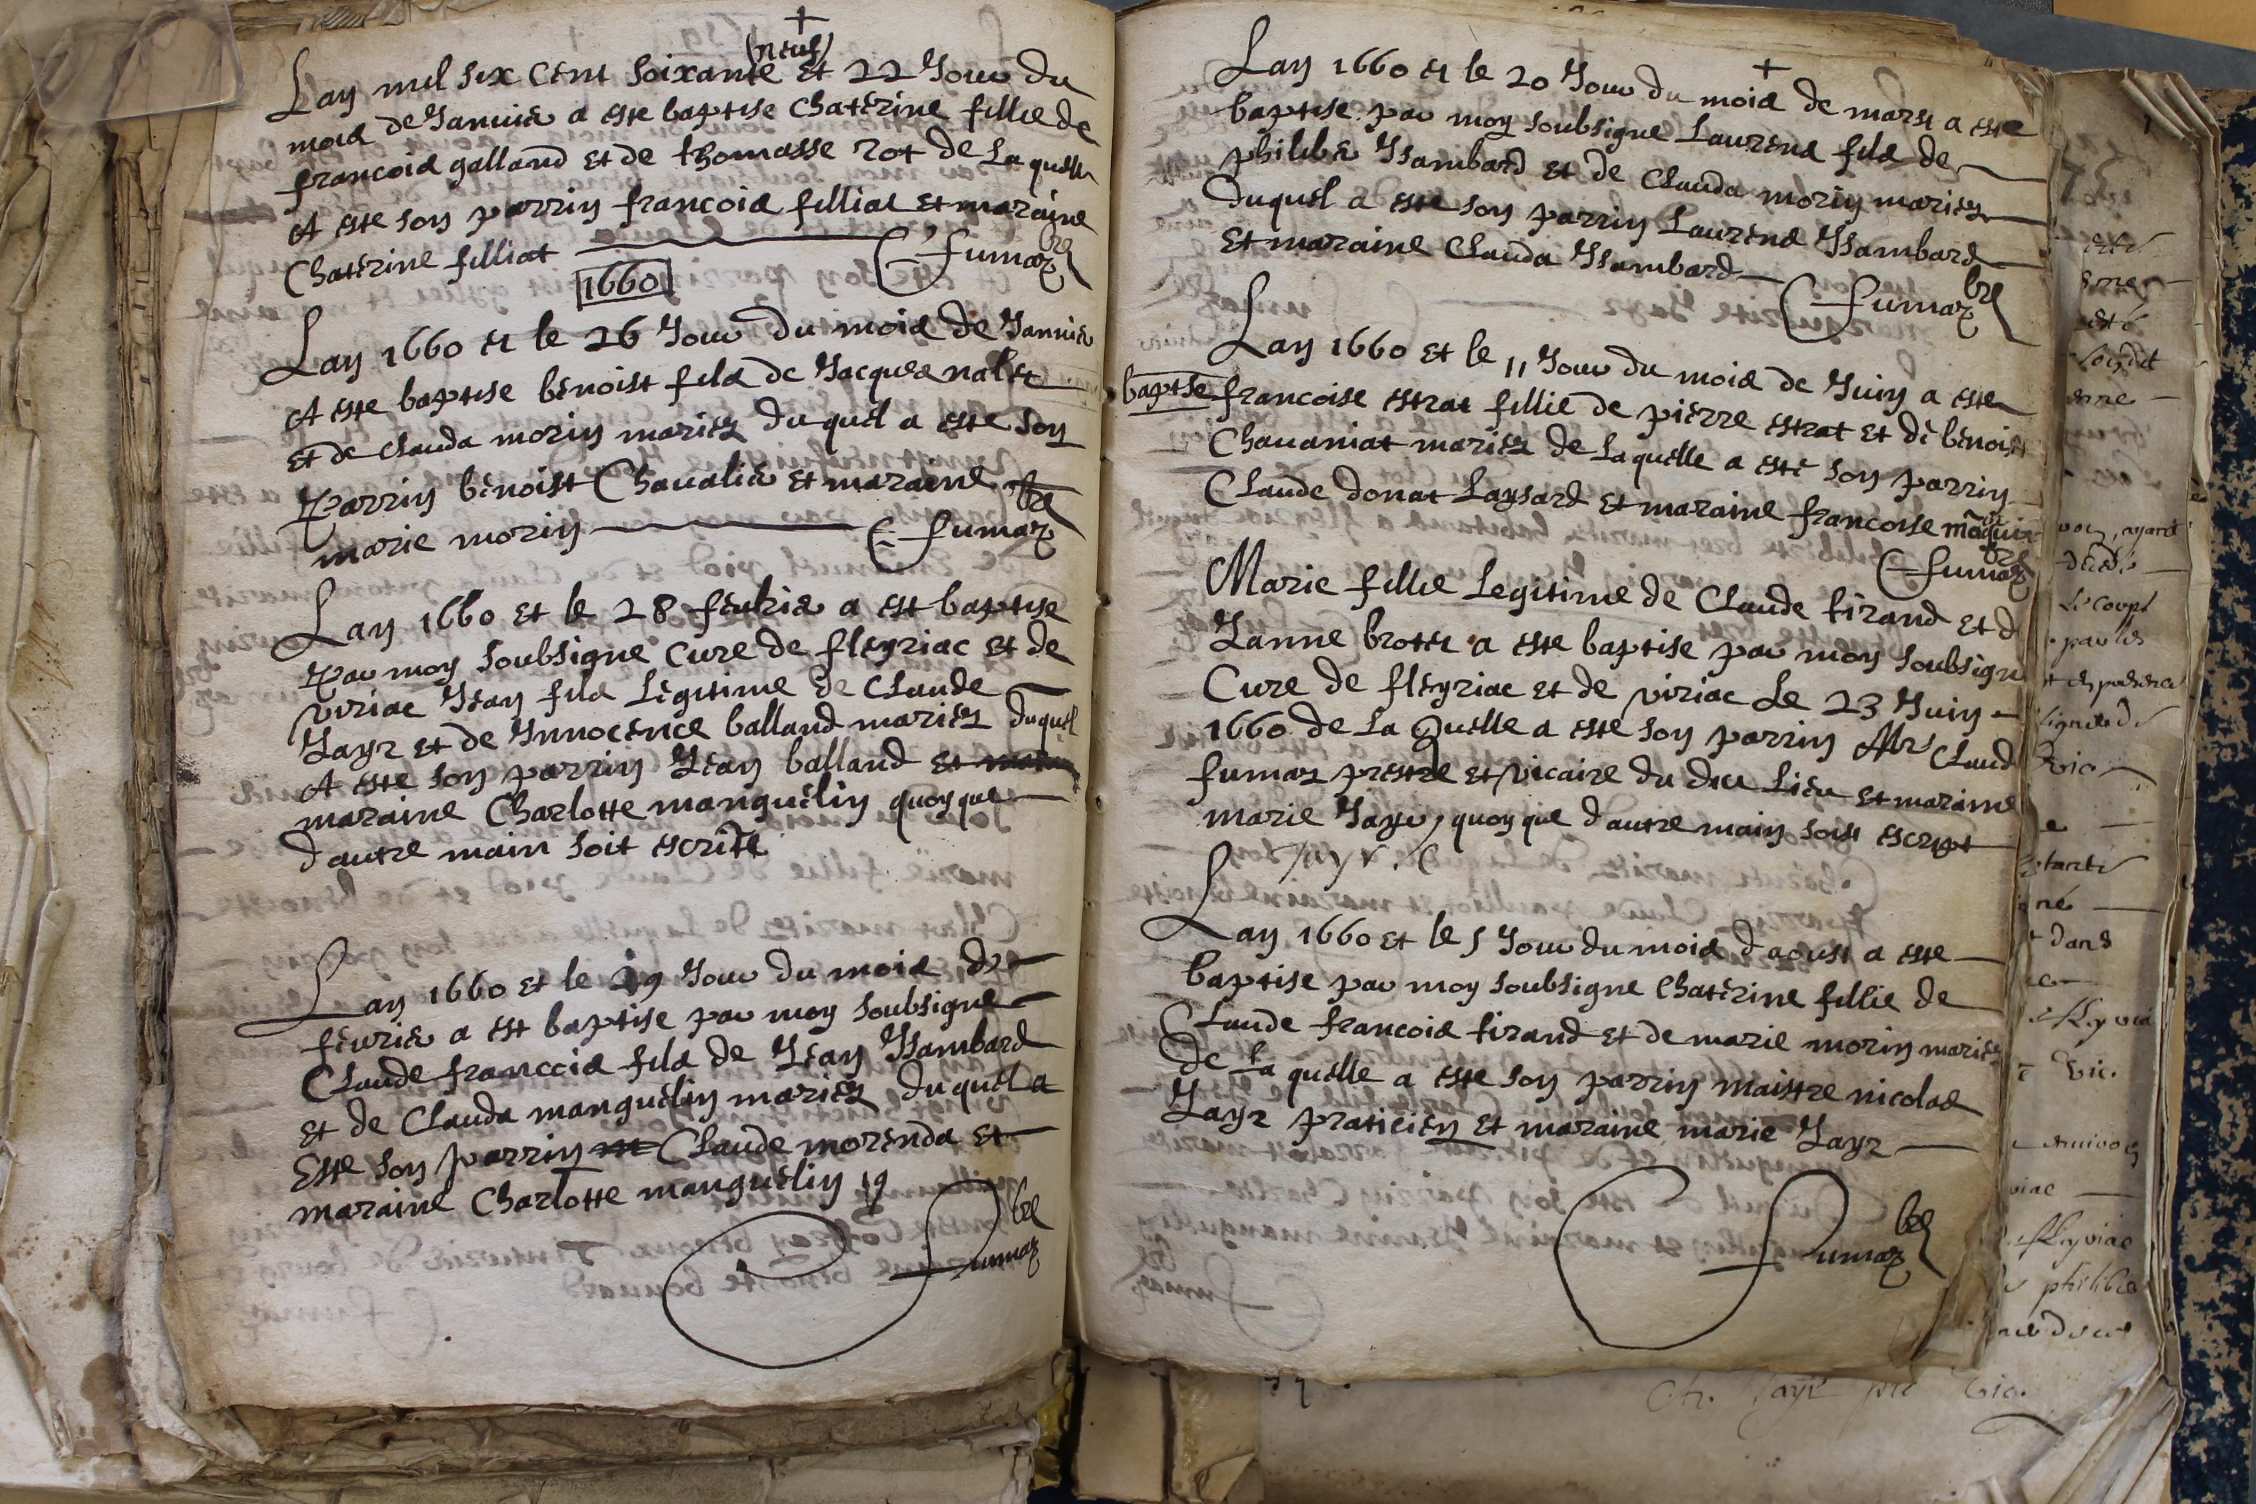 (neuf)
Lan mil six cent soixante et 22 Jour du
mois de Januier a este baptise Chaterine fillie de
francois galland et de thomasse rot de Laquelle
A este son parrin francois filliat et maraine
Chaterine filliat C. fumaz bre
1660
Lan 1660 et le 26 Jour du mois de Januier
A este baptise benoist fils de Jacques nalet
et de Clauda morin mariez du quel a este son
Parrin benoist Chaualier et maraine
marie morin C. fumaz bre
Lan 1660 et le 28 feubrier a est baptise
Par moy soubsigne Cure de fleyriac et de
viriac Jean fils Legitime de Claude
Jayr et de Innocence balland mariez duquel
A este son parrin Jean balland et
maraine Charlotte manguelin quoyque
d'autre main soit escrite
Lan 1660 et le 29 Jour du mois de
feurier a est baptise par moy soubsigne
Claude francois fils de Jean Ysambard
et de Clauda manguelin mariez duquel a
Este son parrin Claude morenda et
maraine Charlotte manguelin 19
C fumaz bre
Lan 1660 et le 20 Jour du mois de mars a este
baptise par moy soubsigne Laurens fils de
philiber Ysambard et de Clauda morin mariez
duquel a este son parrin Laurens Ysambard
Et maraine Clauda Ysambard
C fumaz bre
Lan 1660 et le 11 Jour du mois de Juin a este
baptise francoise estrat fillie de pierre estrat et de benoist
Chauaniat mariez de Laquelle a este son parrin
Claude donat Laysard et maraine francoise
C fumaz bre
Marie fillie Legitime de Claude tirand et d
Janne brotte a este baptise par moy soubsigne
Cure de fleyriac et de viriac Le 23 Juin
1660 de La quelle a este son parrin Mre Claud
fumaz prestre et vicaire du dict Lieu et maraine
marie Jayr, quoyque d'autre main soit escript
Jayr. C
Lan 1660 et le 5 Jour du mois d'aoust a este
baptise par moy soubsigne Chaterine fillie de
Claude francois tirand et de marie morin mariez
de La quelle a este son parrin maistre nicolas
Jayr praticien et maraine marie Jayr
C fumaz bre